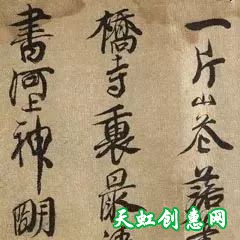 一片山花落
橋寺裏最
書河上神明
天虹创意网